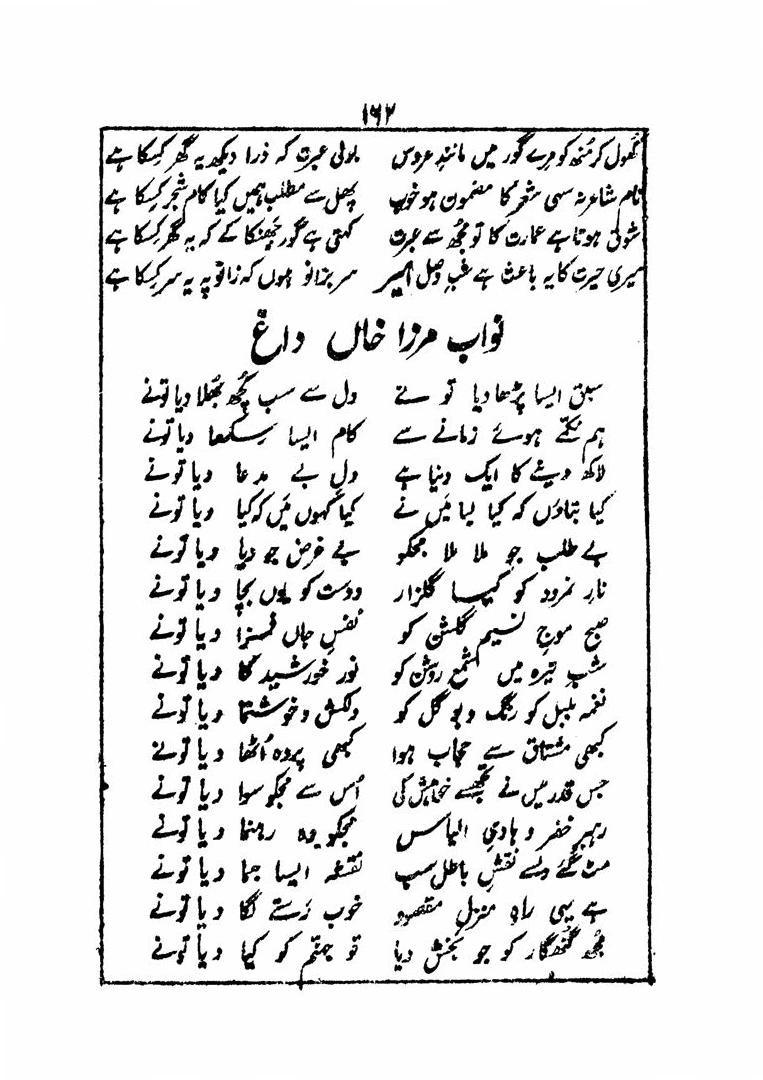 ۱۶۲
کھول کر منھ کو مرے گور میں مانندِ عروس بولی عبرت کہ ذرا دیکھ یہ گھر کسکا ہے
نام شاعر نہ سہی شعر کا مضمون ہو خوب پھل سے مطلب ہمیں کیا کام شجر کسکا ہے
شوق ہوتا ہے عمارت کا تو مجھ سے عبرت کہتی ہے گور جھنکا کے کہ یہ گھر کسکا ہے
میری حیرت کا یہ باعث ہے شبِ وصل امیر سر بزانو ہوں کہ زانو پہ یہ سر کسکا ہے
نواب مرزا خاں داغ
سبق ایسا پڑھا دیا تو نے دل سے سب کچھ بھلا دیا تونے
ہم نکمے ہوئے زمانے سے کام ایسا سکھا دیا تونے
لاکھ دینے کا ایک دینا ہے دلِ بے مدعا دیا تونے
کیا بتاؤں کہ کیا لیا میں نے کیا کہوں میں کہ کیا دیا تونے
بے طلب جو ملا ملا مجکو بے غرض جو دیا دیا تونے
نارِ نمرود کو کیا گلزار دوست کو یوں بچا دیا تونے
صبح موجِ نسیم گلشن کو نفسِ جاں فزا دیا تونے
شبِ تیرہ میں شمع روشن کو نور خورشید کا دیا تونے
نغمہ بلبل کو رنگ و بو گل کو دلکش و خوشنما دیا تونے
کبھی مشتاق سے حجاب ہوا کبھی پردہ اُٹھا دیا تونے
جس قدر میں نے تجھسے خواہش کی اُس سے مجکو سوا دیا تونے
رہبرِ خضر و ہادیِ الیاس مجکو وہ رہنما دیا تونے
مٹ گئے دلسے نقشِ باطل سب نقشہ ایسا جما دیا تونے
ہے یہی راہِ منزلِ مقصود خوب رستے لگا دیا تونے
مجھ گنھگار کو جو بخش دیا تو جہنم کو کیا دیا تونے